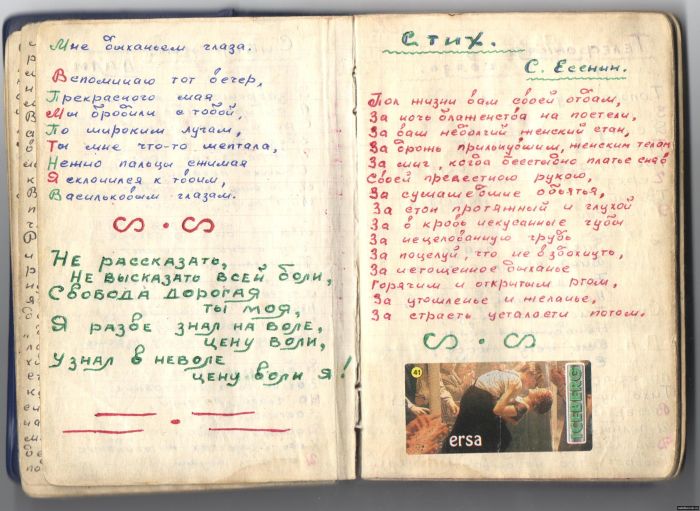 Мне дыханьем глаза.
Вспоминаю тот вечер,
Прекрасного мая
Мы бродили с тобой,
По широким лучам,
Ты мне что-то шептала,
Нежно пальцы сжимая
Я склонился к твоим,
Васильковым глазам.
Не рассказать,
Не высказать всей боли,
Свобода дорогая
ты моя,
Я разве знал на воле,
цену воли,
Узнал в неволе
цену воли я!
Стих.
С. Есенин.
Пол жизни вам своей отдам,
За ночь блаженства на постели,
За ваш недолгий женский стан,
За дрожь прильнувшим, женским телам
За миг, когда бесстыдно платье сняв
Своей прелестною рукою,
За сумашедшие обьятья,
За стон протяжный и глухой
За в кровь искусанные губы
За нецелованную грудь
За поцелуй, что не вздохнуть,
За истощенное дыханье
Горячим и открытым ртом,
За утомленье и желанье,
За страсть усталости потом.
41
ersa
ICEBERG